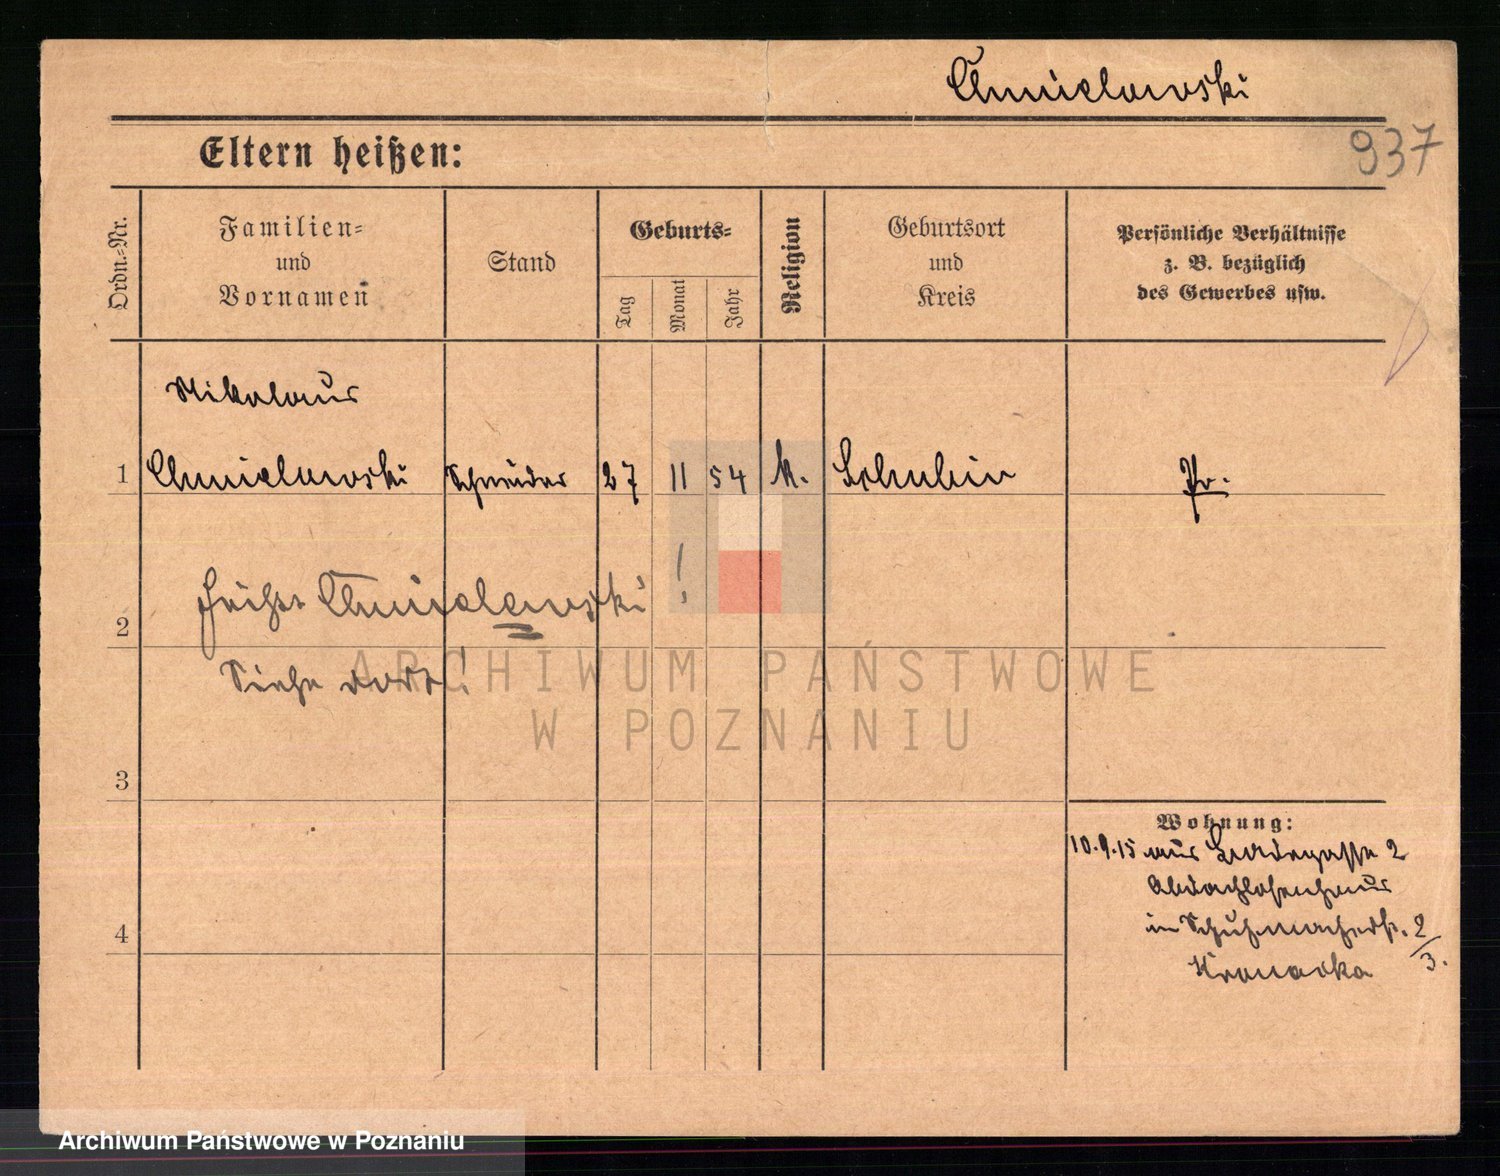 Chmielowski
937
Eltern heißen:
Ordn.-Nr.
Familien-
und
Vornamen
Stand
Geburts-
Tag
Monat
Jahr
Religion
Geburtsort
und
Kreis
Persönliche Verhältnisse
z. B. bezüglich
des Gewerbes usw.
Nikolaus
1 Chmielowski Schneider 27 11 54 k. Schubin Pr.
heißt Chmielewski!
2
Siehe dort!
3
4
Wohnung:
10.9.15 aus 2
Obdachlosenhaus
in Schuhmacherstr. 2/3.
Kronecka
ARCHIWUM PAŃSTWOWE
W POZNANIU
Archiwum Państwowe w Poznaniu